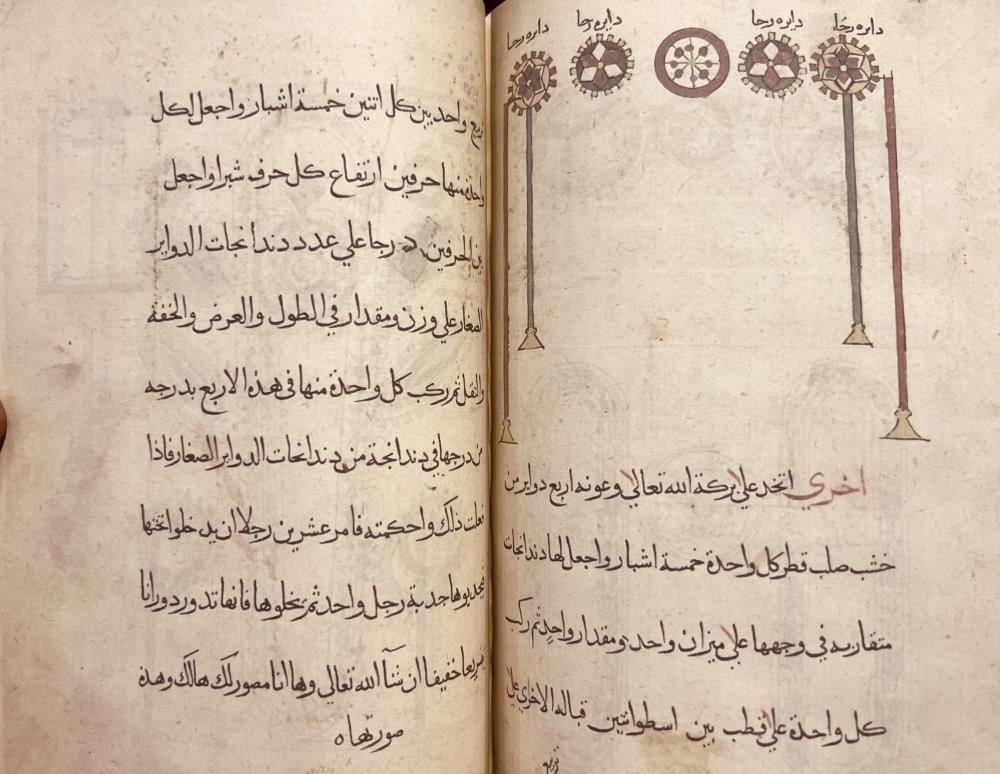 دايره رحا
دايره رحا
دايره رحا
دايره رحا
اخري اتخد علي بركة الله تعالي وعونه اربع دواير من
خشب صلب قطر كل واحدة خمسة اشبار واجعل لها دندانجات
متقاربه في وجهها علي ميزان واحد ومقدار واحد ثم ركب
كل واحدة علي قطب بين اسطوانتين قباله الاخري علي
تربيع
تربيع واحد بين كل اتنين خمسة اشبار واجعل لكل
واحدة منها حرفين ارتفاع كل حرف شبرا واجعل
بين الحرفين درجا علي عدد دندانجات الدواير
الصغار علي وزن ومقدار في الطول والعرض والخفة
والثقل ثم ركب كل واحدة منها في هذه الاربع بدرجه
من درجها في دندانجة من دندانجات الدواير الصغار فاذا
فعلت ذلك واحكمته فامر عشرين رجلا ان يدخلوا تحتها
فيجذبوها جدبة رجل واحد ثم يخلوها فانها تدور دورانا
سريعا خفيفا ان شآ الله تعالي وها انا مصور لك هالك وهذه
صورتها ه